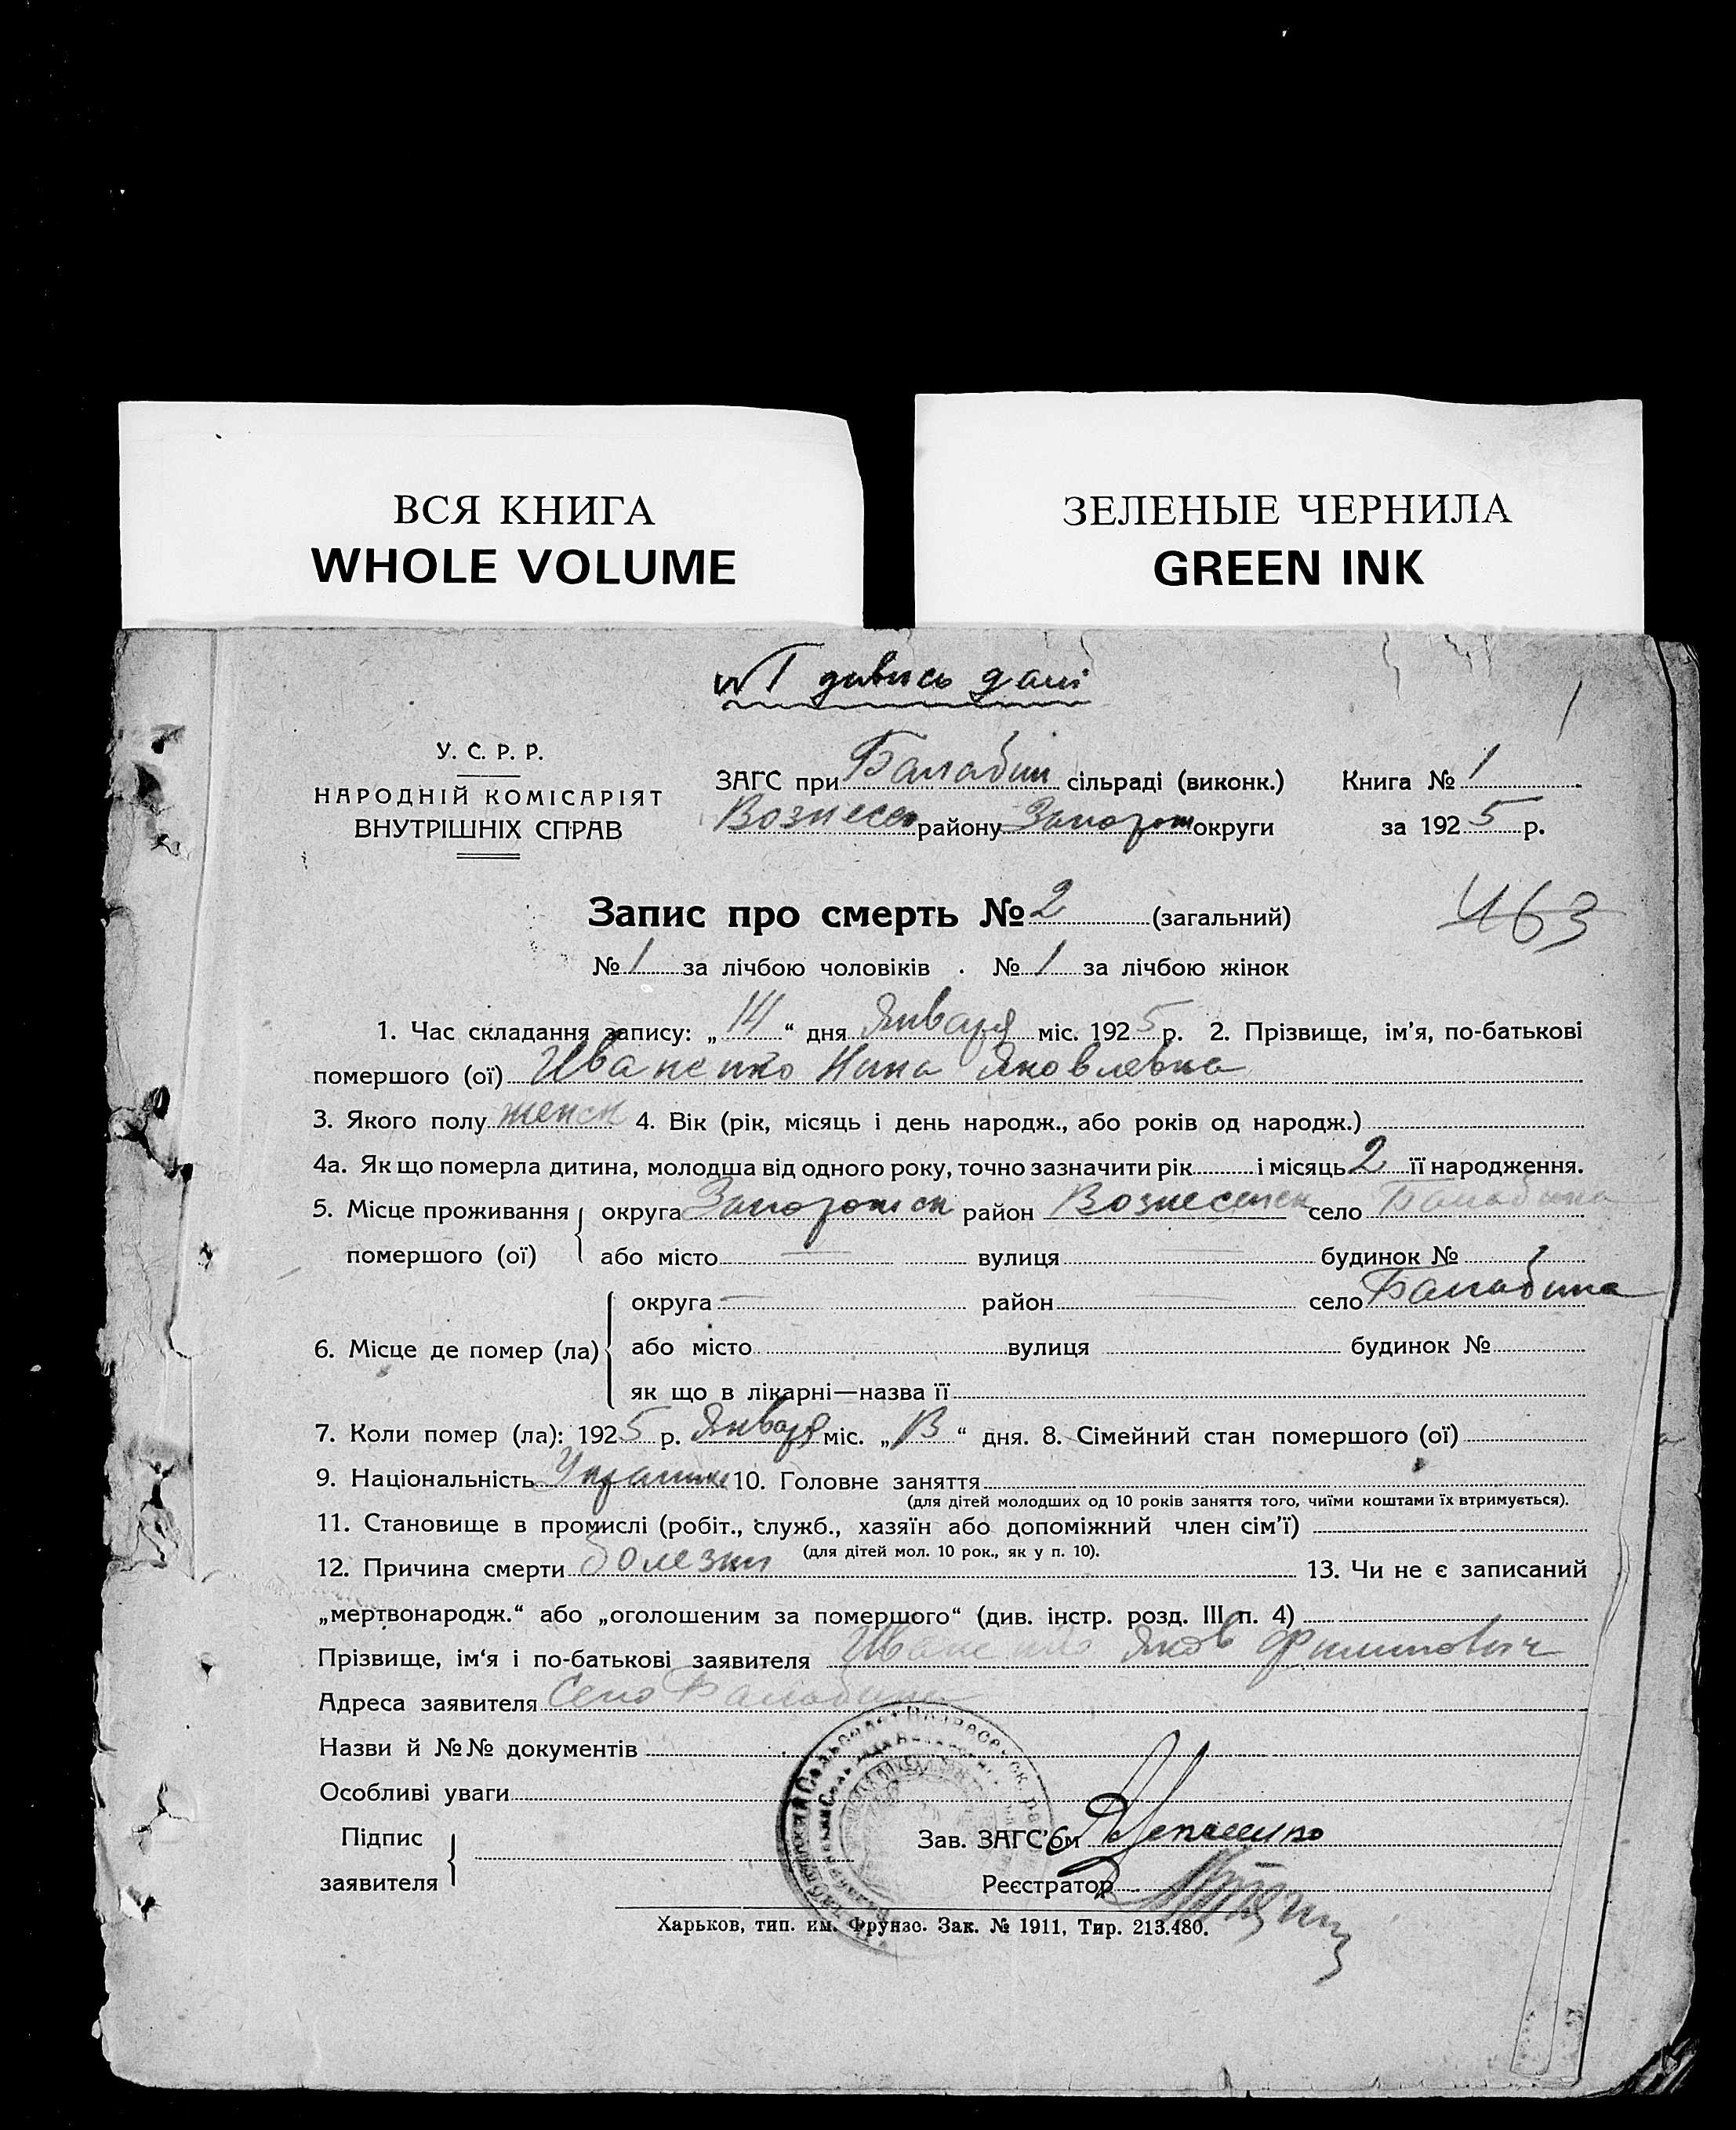 ВСЯ КНИГА
WHOLE VOLUME
ЗЕЛЕНЫЕ ЧЕРНИЛА
GREEN INK
№1 дивись далі
1
У. С. Р. Р.
НАРОДНІЙ КОМІСАРІЯТ
ВНУТРІШНІХ СПРАВ
ЗАГС при Балабин сільраді (виконк.) Книга № 1
Вознесен району Запорож округи за 1925 р.
Запис про смерть № 2 (загальний)
463
№ 1 за лічбою чоловіків . № 1 за лічбою жінок
1. Час складання запису: „14“ дня Января міс. 1925 р. 2. Прізвище, ім’я, по-батькові
помершого (ої) Иваненко Нина Яковлевна
3. Якого полу женск 4. Вік (рік, місяць і день народж., або років од народж.)
4а. Як що померла дитина, молодша від одного року, точно зазначити рік і місяць 2 її народження.
5. Місце проживання помершого (ої) округа Запорожск район Вознесенск село Балабина
або місто вулиця будинок №
6. Місце де помер (ла) округа район село Балабина
або місто вулиця будинок №
як що в лікарні—назва її
7. Коли помер (ла): 1925 р. Января міс. „13“ дня. 8. Сімейний стан помершого (ої)
9. Національність Украинка 10. Головне заняття
(для дітей молодших од 10 років заняття того, чиїми коштами їх втримується).
11. Становище в промислі (робіт., служб., хазяїн або допоміжний член сім’ї)
(для дітей мол. 10 рок., як у п. 10).
12. Причина смерти болезни 13. Чи не є записаний
„мертвонародж.“ або „оголошеним за помершого“ (див. інстр. розд. III п. 4)
Прізвище, ім‘я і по-батькові заявителя Иваненко Яков Филипович
Адреса заявителя Село Балабина
Назви й №№ документів
Особливі уваги
Підпис заявителя
Зав. ЗАГС’ом
Реєстратор
Харьков, тип. им. Фрунзе. Зак. № 1911, Тир. 213.480.